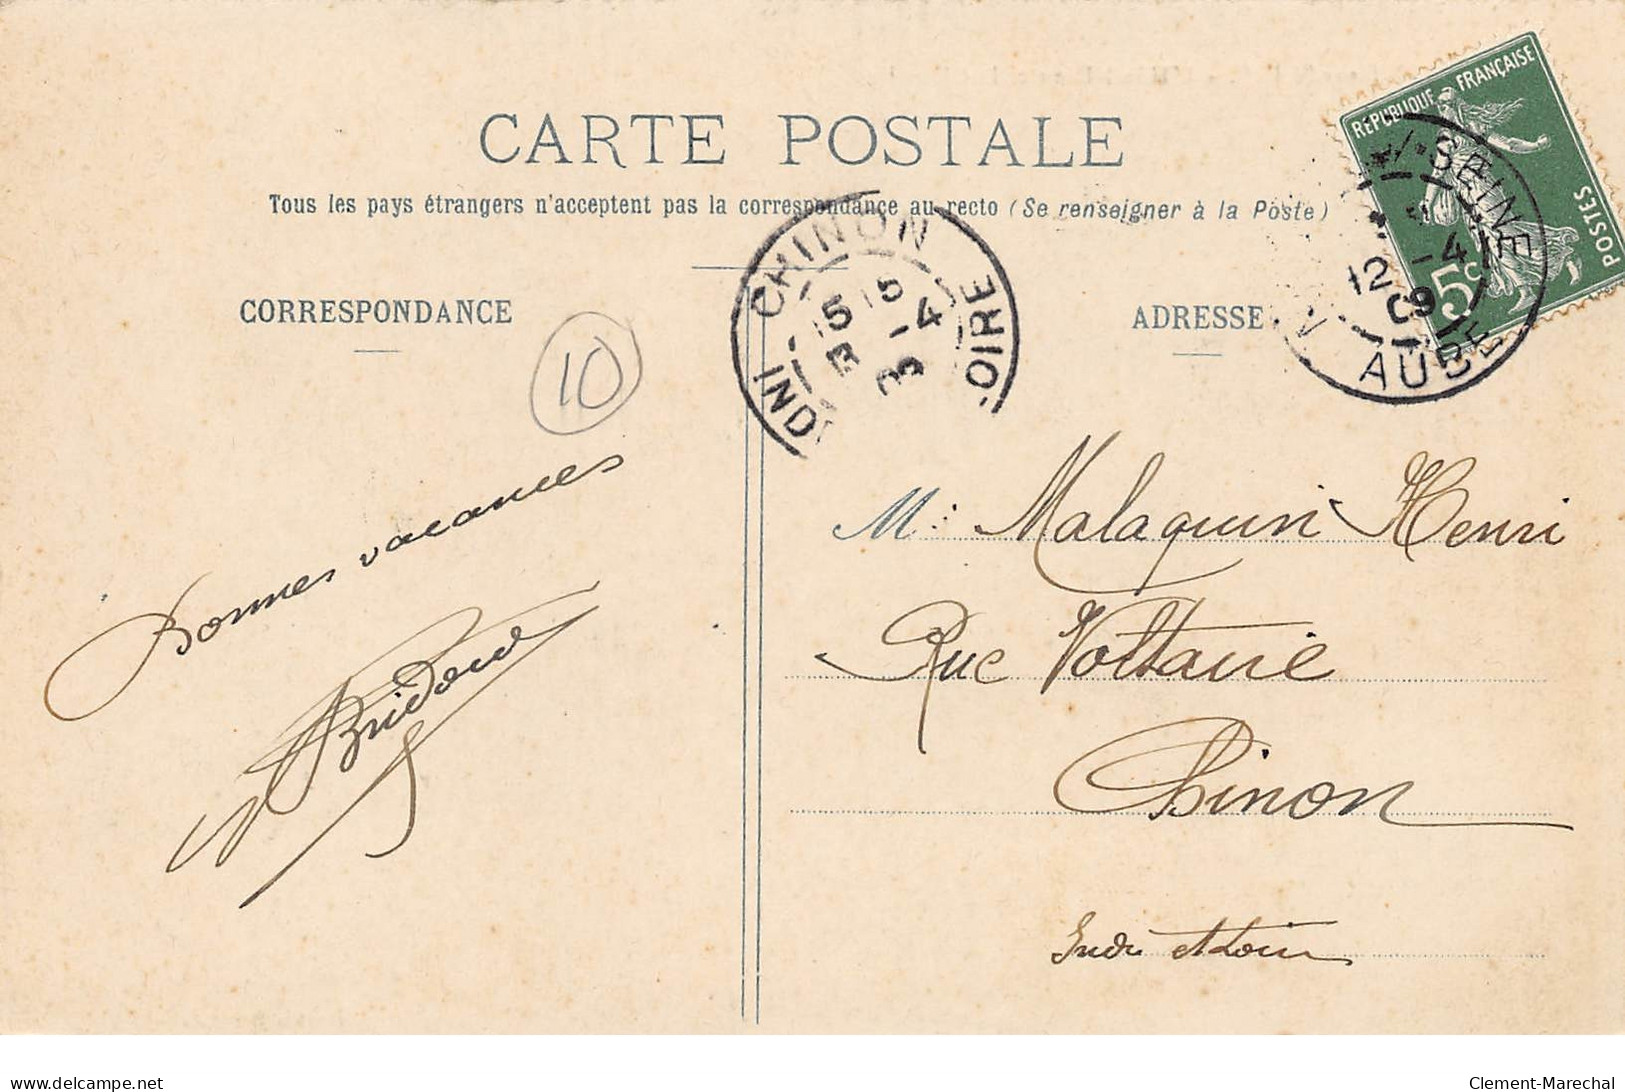 CARTE POSTALE
Tous les pays étrangers n'acceptent pas la correspondance au recto (Se renseigner à la Poste)
CORRESPONDANCE
ADRESSE
RÉPUBLIQUE FRANÇAISE
POSTES
5c
S/-SEINE
12 -4
09
AUBE
CHINON
15 15
-4
09
INDRE
LOIRE
10
Bonnes vacances
M. Malaquin Henri
Rue Voltaire
Chinon
Indre et Loire
delcampe.net
Clement-Marechal